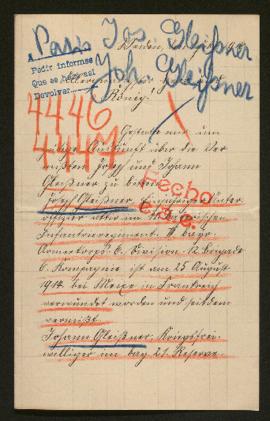 Pasó Jos. Gleißner
Joh. Gleißner
Pedir informes
Que se haga así
Devolver
König!
4446
4447
um
gütige Auskunft über die Ver
mißten Josef und Johann
Gleißner zu bitten.
Josef Gleißner, Unter
offizier im bayerischen
Infanterieregiment. II bayr.
Armeekorps 6. Division. 12 Brigade
6. Kompagnie ist am 25 August
1914 bei Meixe in Frankreich
verwundet worden und seitdem
vermißt.
Johann Gleißner, Kriegsfrei
williger im bay 21. Reserve
Fecho